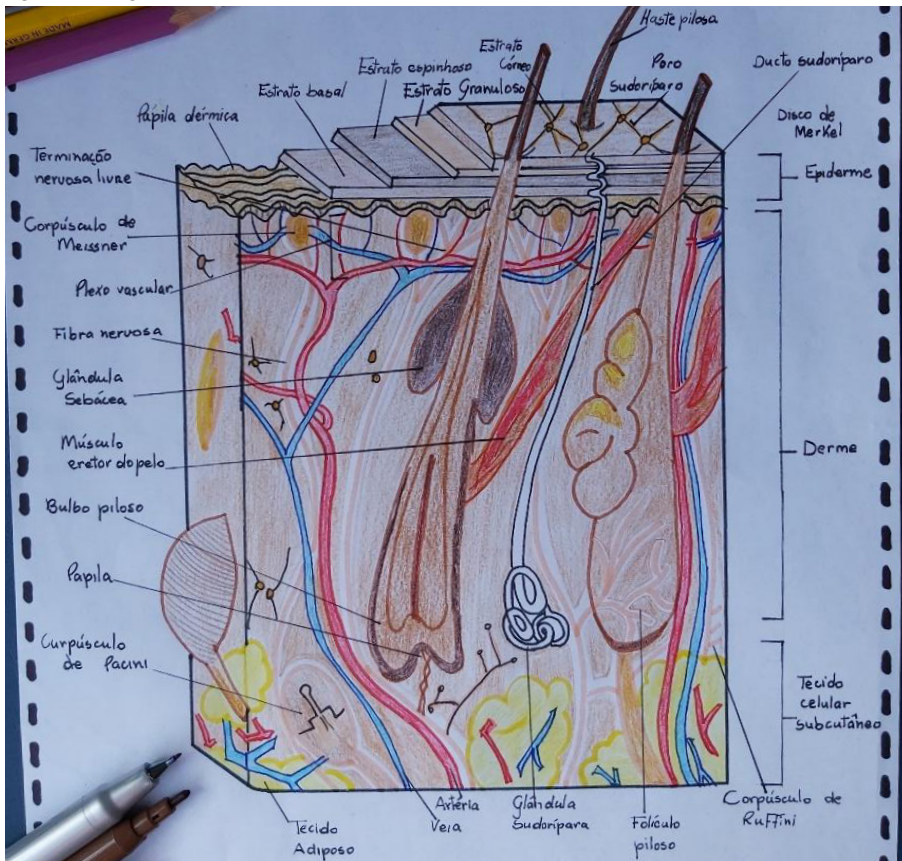 MADE IN GERM
Haste pilosa
Estrato
Córneo
Poro
Sudoríparo
Ducto sudoríparo
Estrato espinhoso
Estrato Granuloso
Estrato basal
Pápila dérmica
Disco de
Merkel
Terminação
nervosa livre
Epiderme
Corpúsculo de
Meissner
Plexo vascular
Fibra nervosa
Glândula
Sebácea
Músculo
eretor do pelo
Derme
Bulbo piloso
Papila
Curpúsculo
de Pacini
Tecido
celular
subcutâneo
Tecido
Adiposo
Veia
Artéria
Glândula
Sudorípara
Folículo
piloso
Corpúsculo de
Ruffini